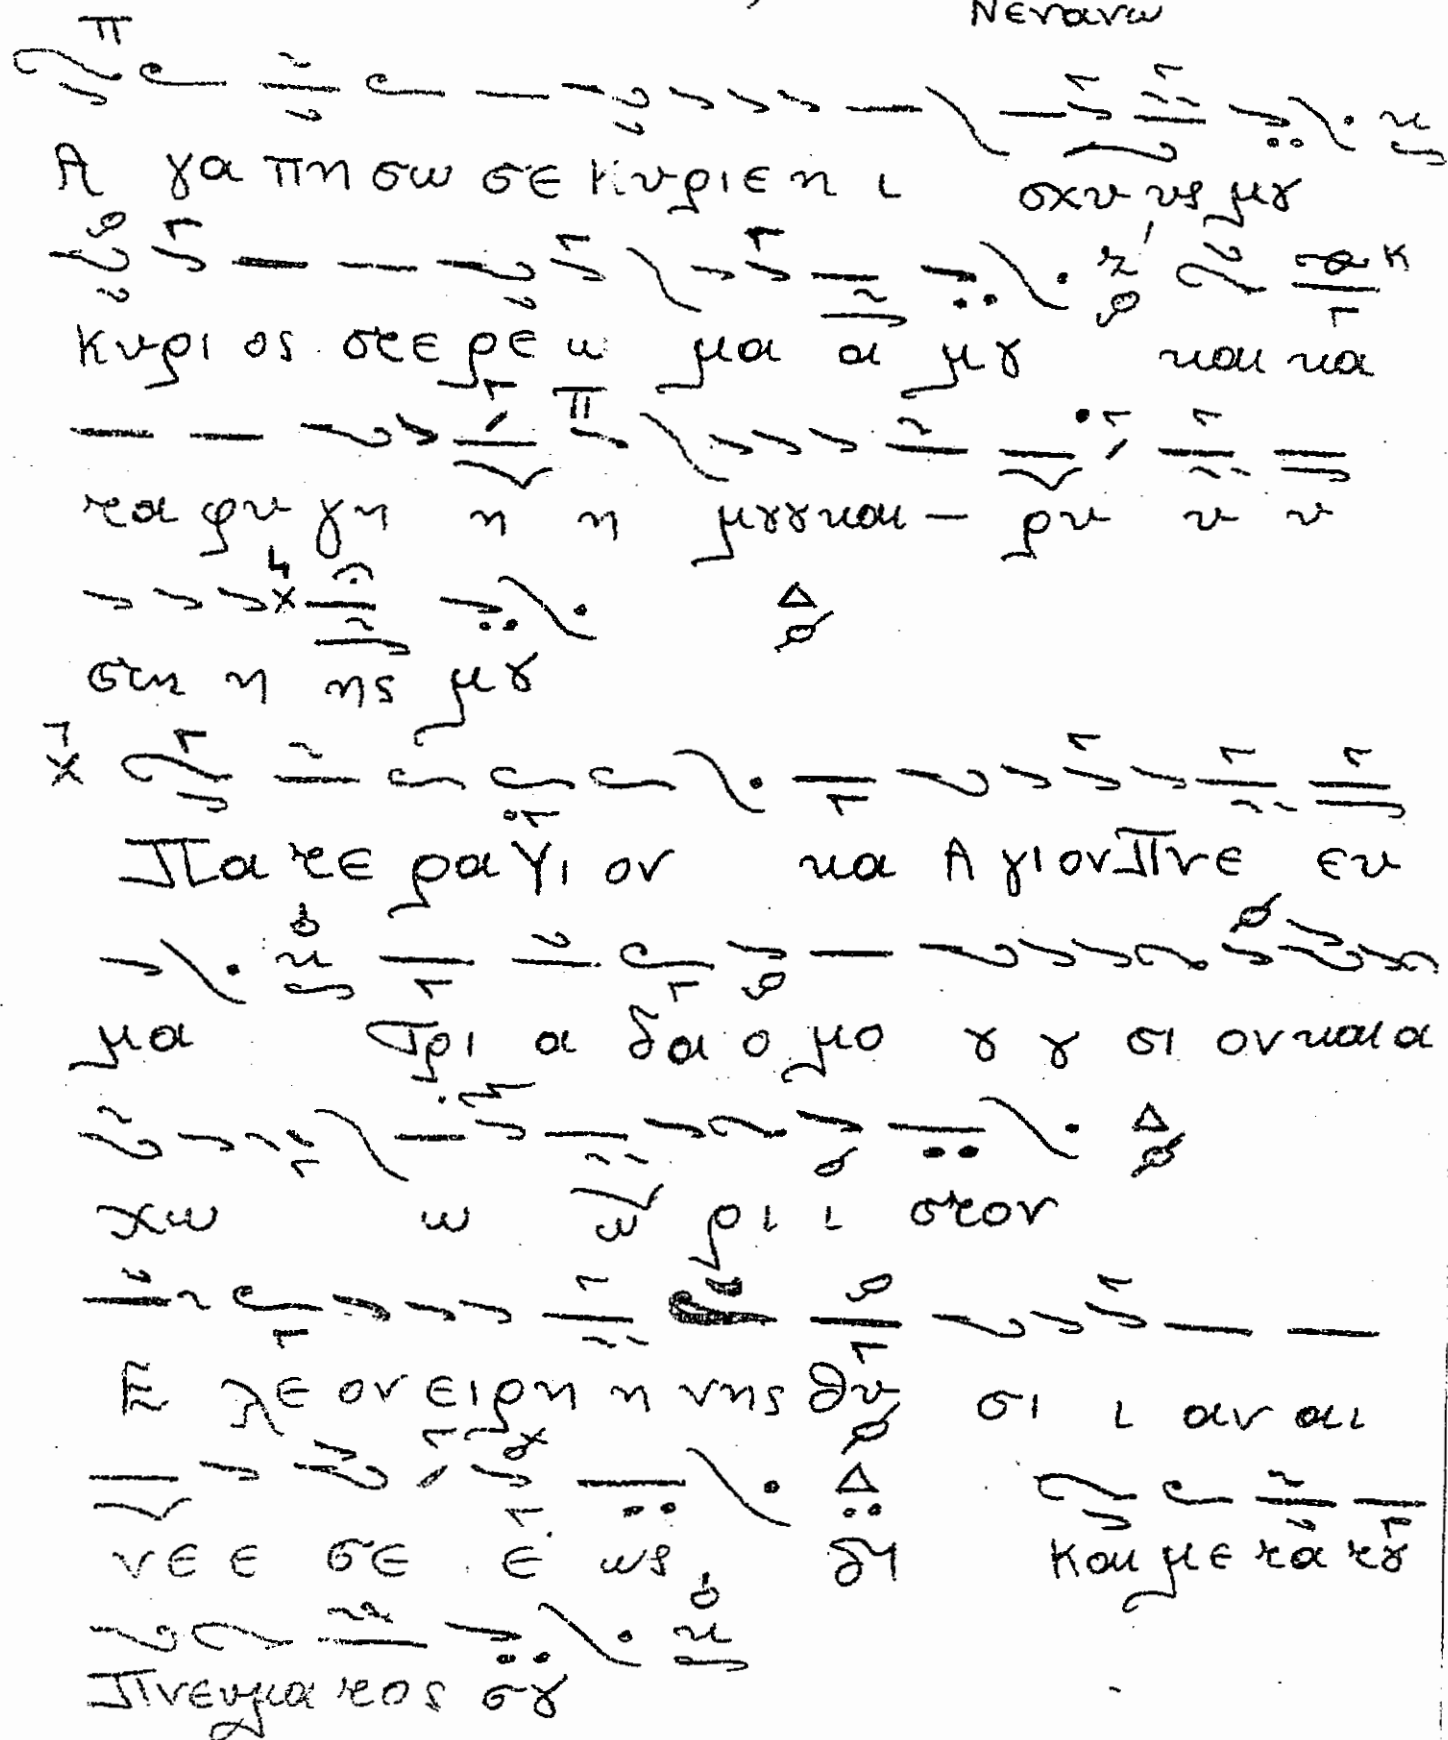 Νενανω
Α γα πη σω σε Κυριε η ι σχυ υς μȣ
Κυρι ος στε ρε ω μα α μȣ και κα
τα φυ γη η η μȣȣ και — ρυ υ υ
στη η ης μȣ
Πα τε ρα Υι ον και Α γιον Πνε ευ
μα Τρι α δα ο μο ȣ ȣ σι ον και α
χω ω ω ρι ι στον
Ε λε ον ειρη η νης θυ σι ι αν αι
νε ε σε ε ως Δι Και με τα τȣ
Πνευμα τος σȣ